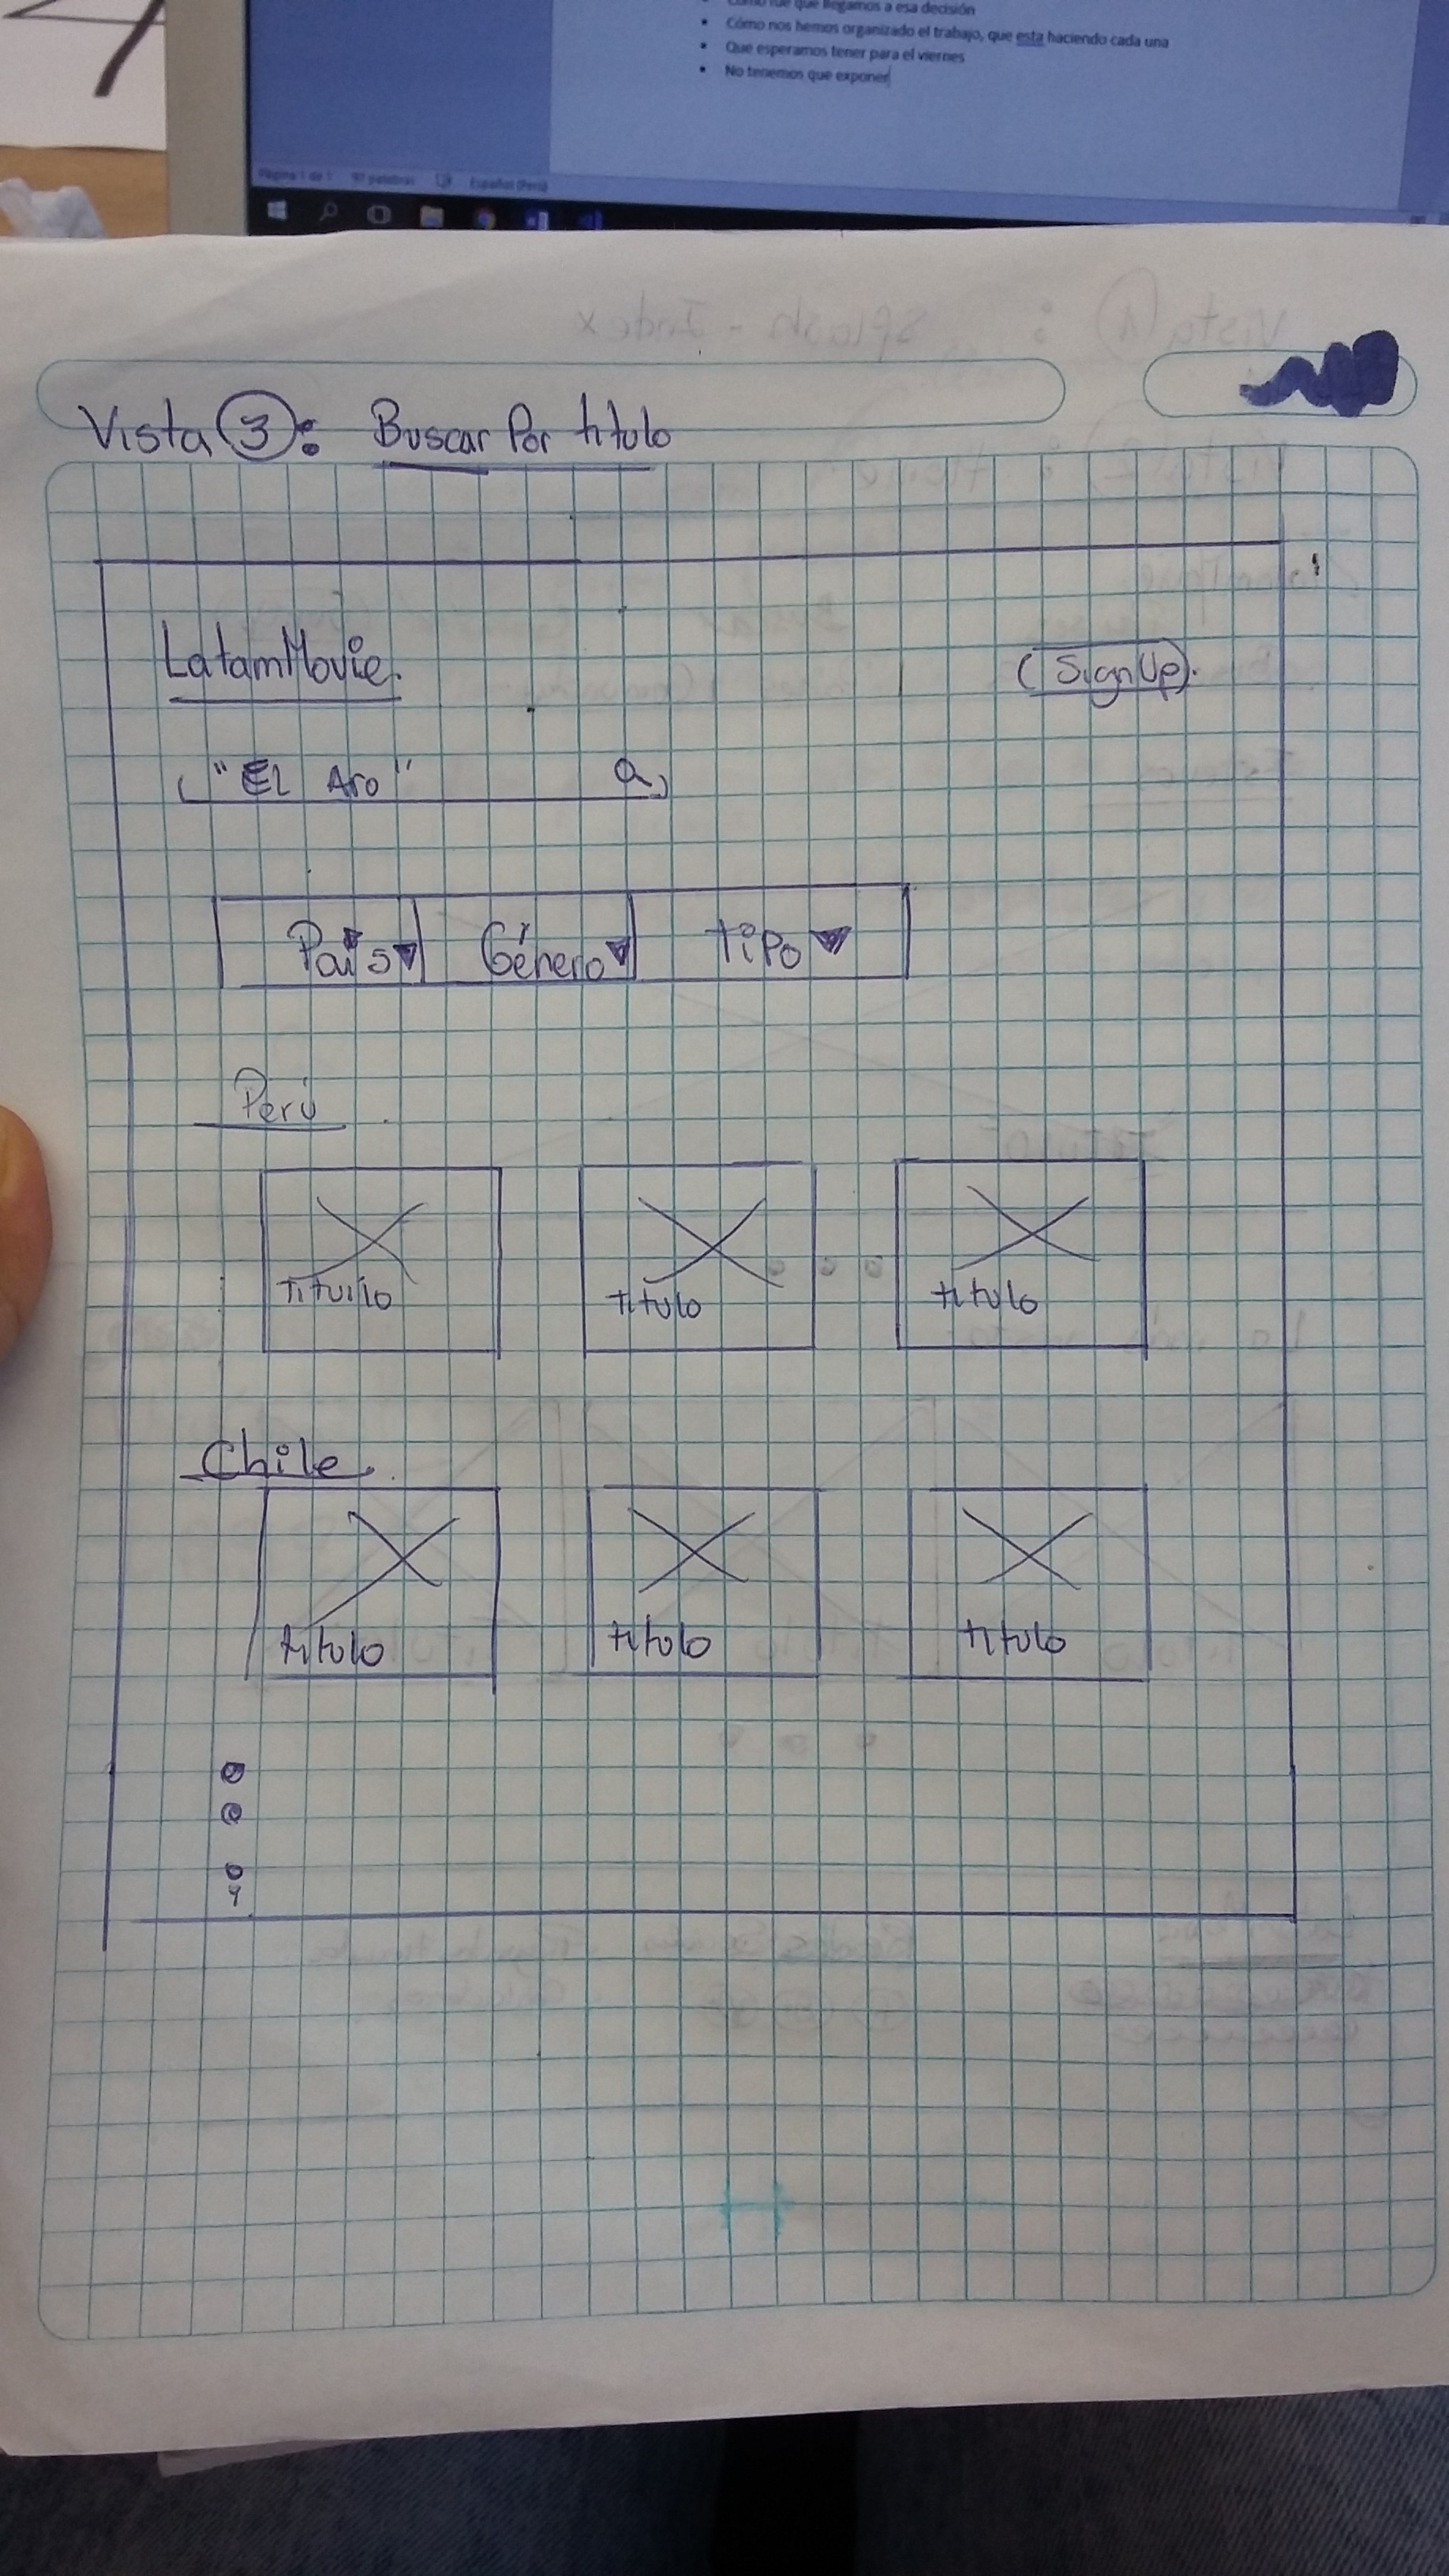 Cómo fue que llegamos a esa decisión
Cómo nos hemos organizado el trabajo, que esta haciendo cada una
Que esperamos tener para el viernes
No tenemos que exponer
Página 1 de 1 97 palabras Español (Perú)
Vista 1 : Splash - Index
Vista 3: Buscar Por titulo
LatamMovie.
SignUp
"El Aro"
País Género tipo
Perú
titulo titulo titulo
Chile.
titulo titulo titulo